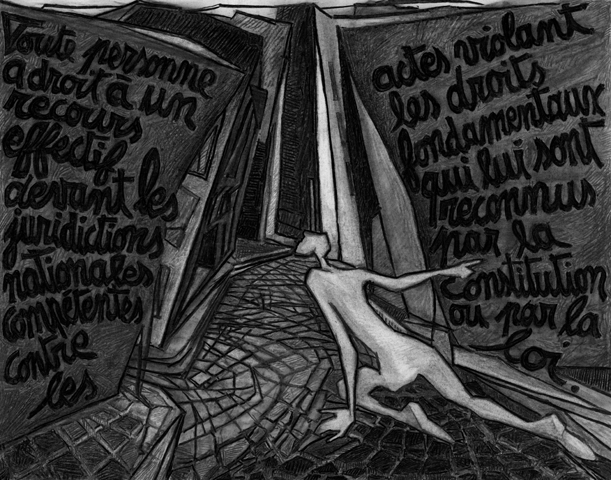 Toute personne
a droit à un
recours
effectif
devant les
juridictions
nationales
compétentes
contre
les
actes violant
les droits
fondamentaux
qui lui sont
reconnus
par la
constitution
ou par la
loi.